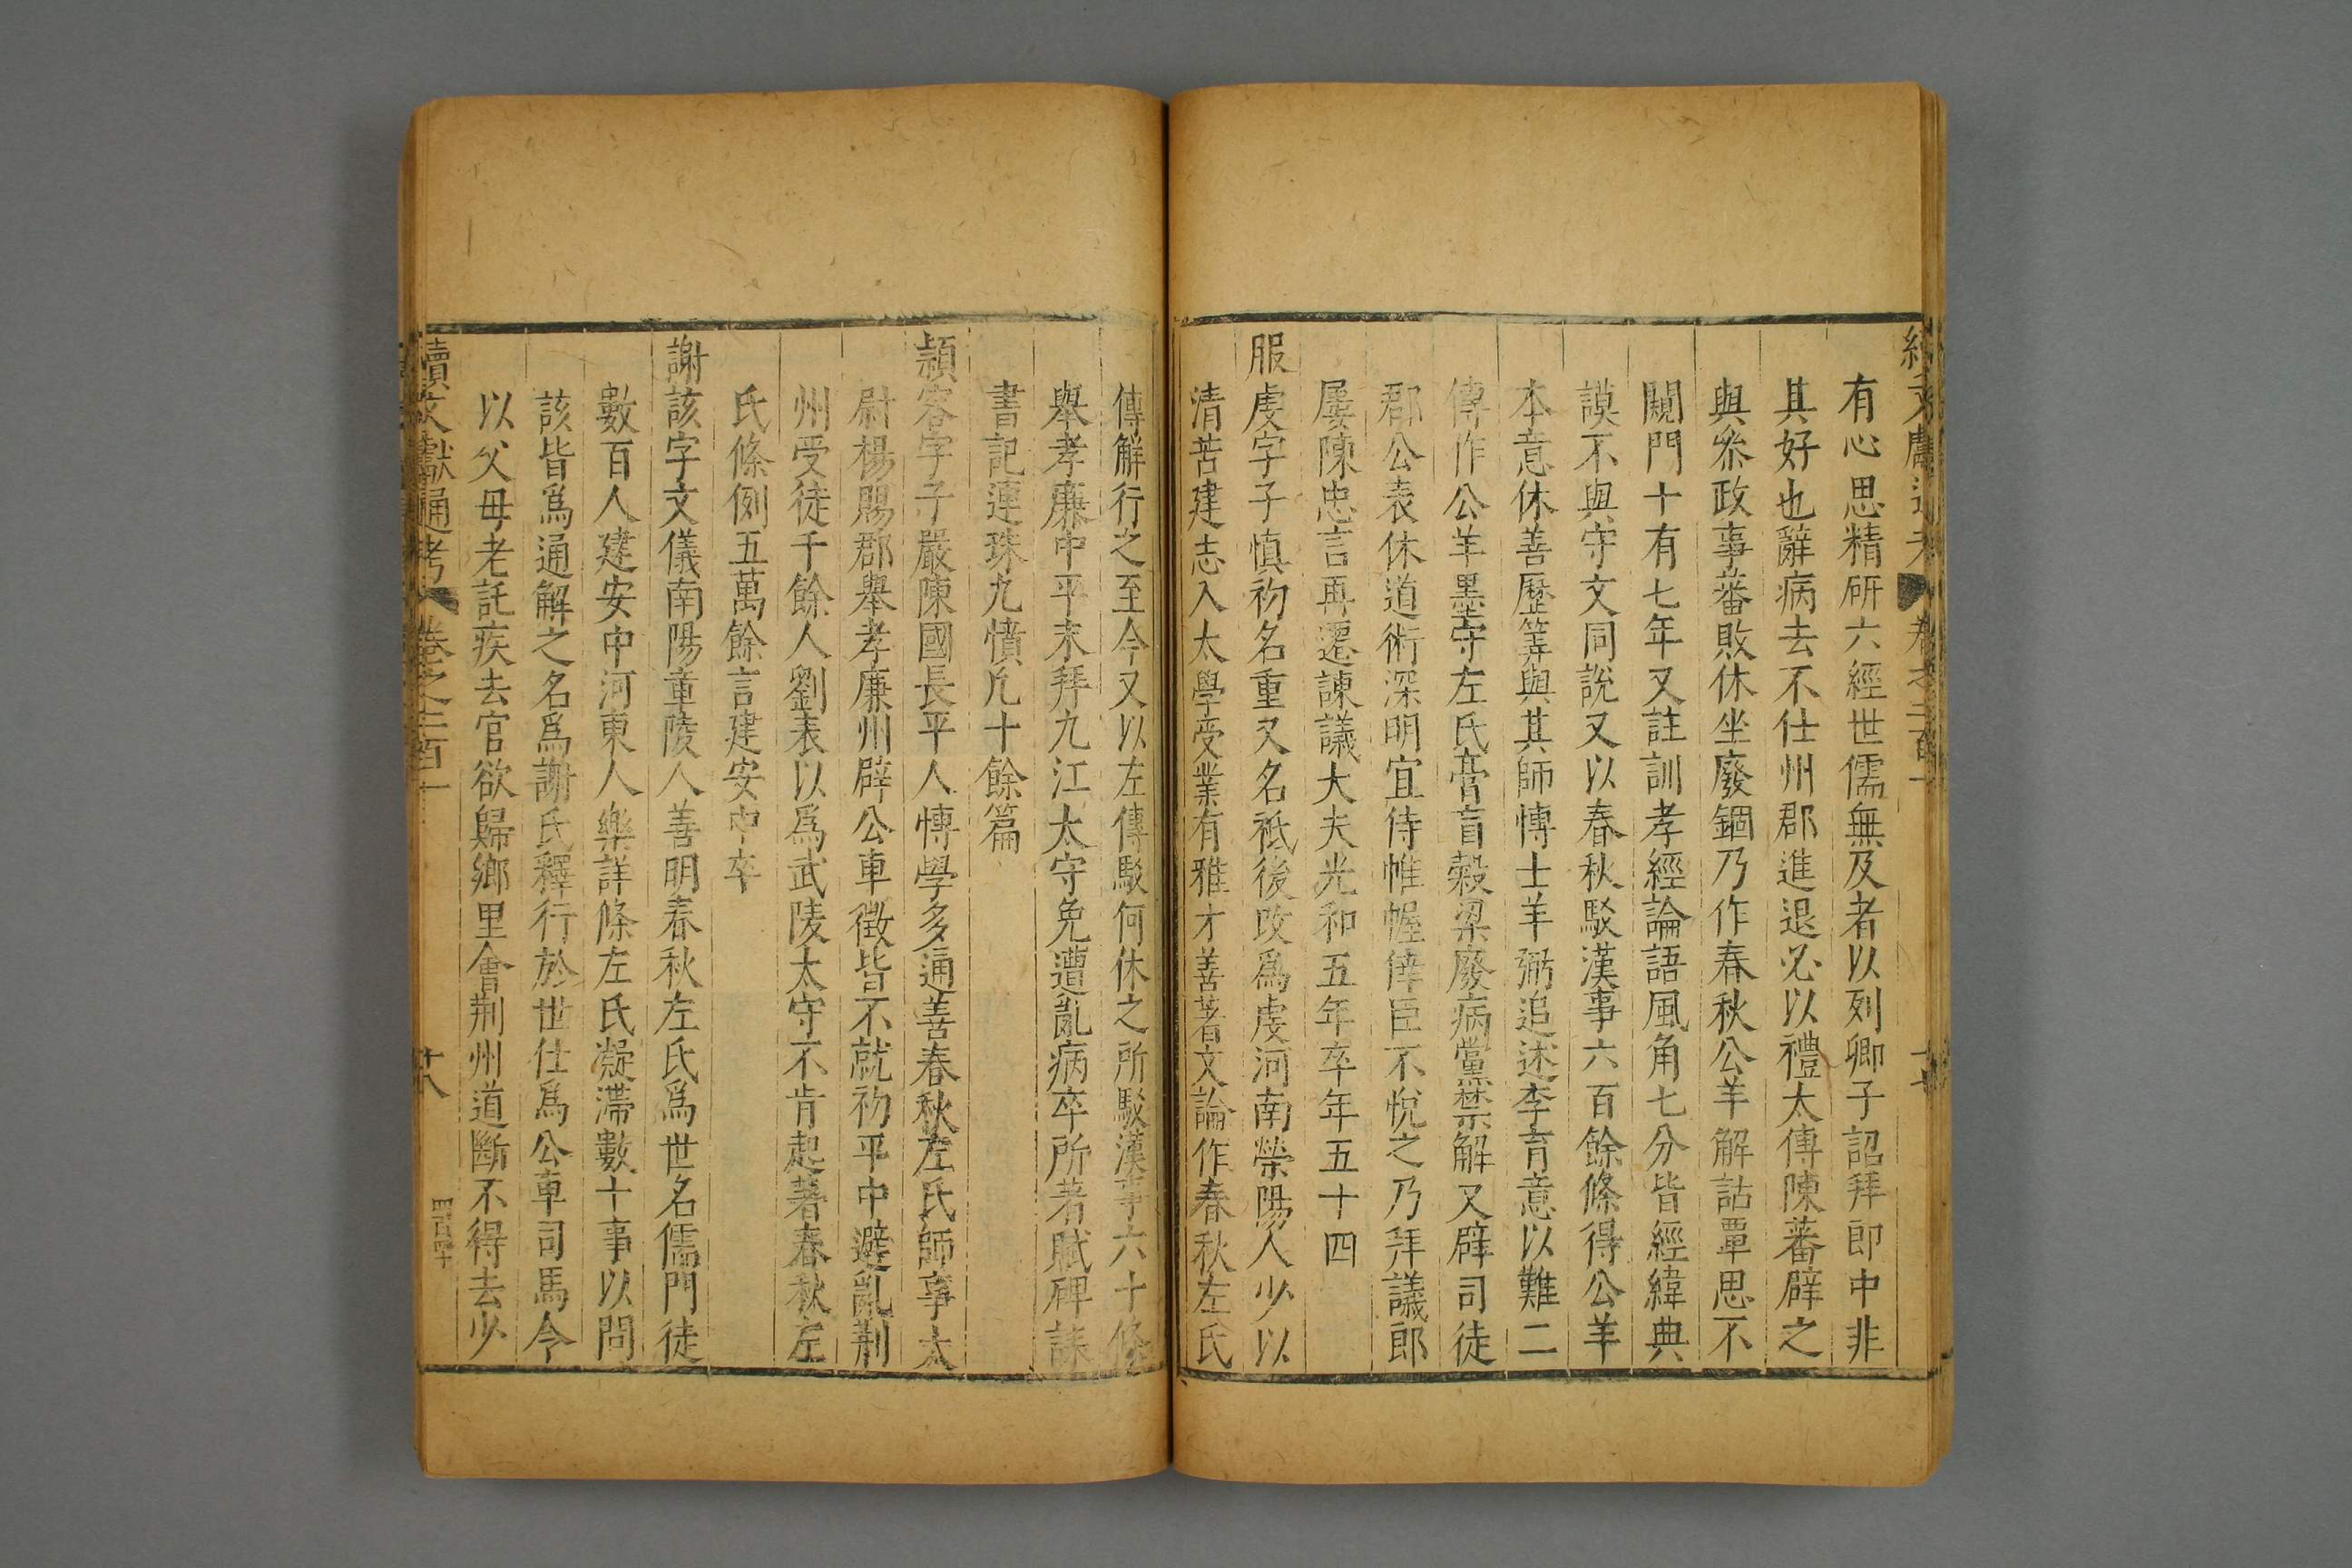 有心思精研六經世儒無及者以列卿子詔拜郎中非
其好也辭病去不仕州郡進退必以禮太傅陳蕃辟之
與叅政事蕃敗休坐廢錮乃作春秋公羊解詁覃思不
闚門十有七年又註訓孝經論語風角七分皆經緯典
謨不與守文同說又以春秋駁漢事六百餘條得公羊
本意休善歷筭與其師博士羊弼追述李育意以難二
傳作公羊墨守左氏膏肓榖梁廢病黨禁解又辟司徒
郡公表休道術深明宜侍帷幄倖臣不悅之乃拜議郎
屢陳忠言再遷諫議大夫光和五年卒年五十四
服虔字子慎初名重又名祗後改爲虔河南滎陽人少以
清苦建志入太學受業有雅才善著文論作春秋左氏
傳解行之至今又以左傳駁何休之所駁漢事六十條
舉孝廉中平末拜九江太守免遭亂病卒所著賦碑誄
書記連珠九憤凡十餘篇
頴容字子嚴陳國長平人博學多通善春秋左氏師事太
尉楊賜郡舉孝廉州辟公車徵皆不就初平中避亂荆
州受徒千餘人劉表以爲武陵太守不肯起著春秋左
氏條例五萬餘言建安中卒
謝該字文儀南陽章陵人善明春秋左氏爲世名儒門徒
數百人建安中河東人樂詳條左氏凝滯數十事以問
該皆爲通解之名爲謝氏釋行於世仕爲公車司馬令
以父母老託疾去官欲歸鄉里會荆州道斷不得去少
續文獻通考 卷之二百一 十八